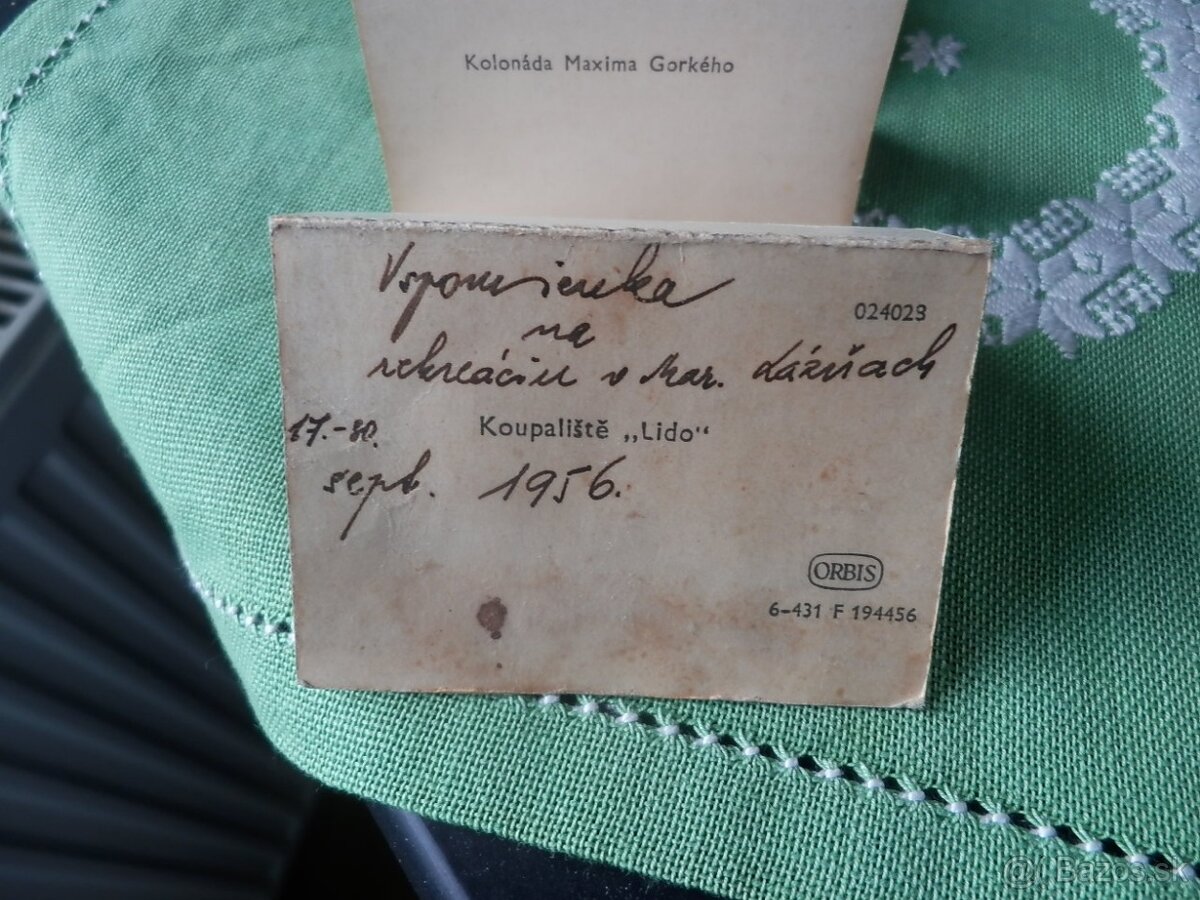 Kolonáda Maxima Gorkého
Vspomienka
024023
na
rekreáciu v Mar. Lázňach
17.-30.
Koupaliště „Lido"
sept. 1956.
ORBIS
6-431 F 194456
Bazos.sk